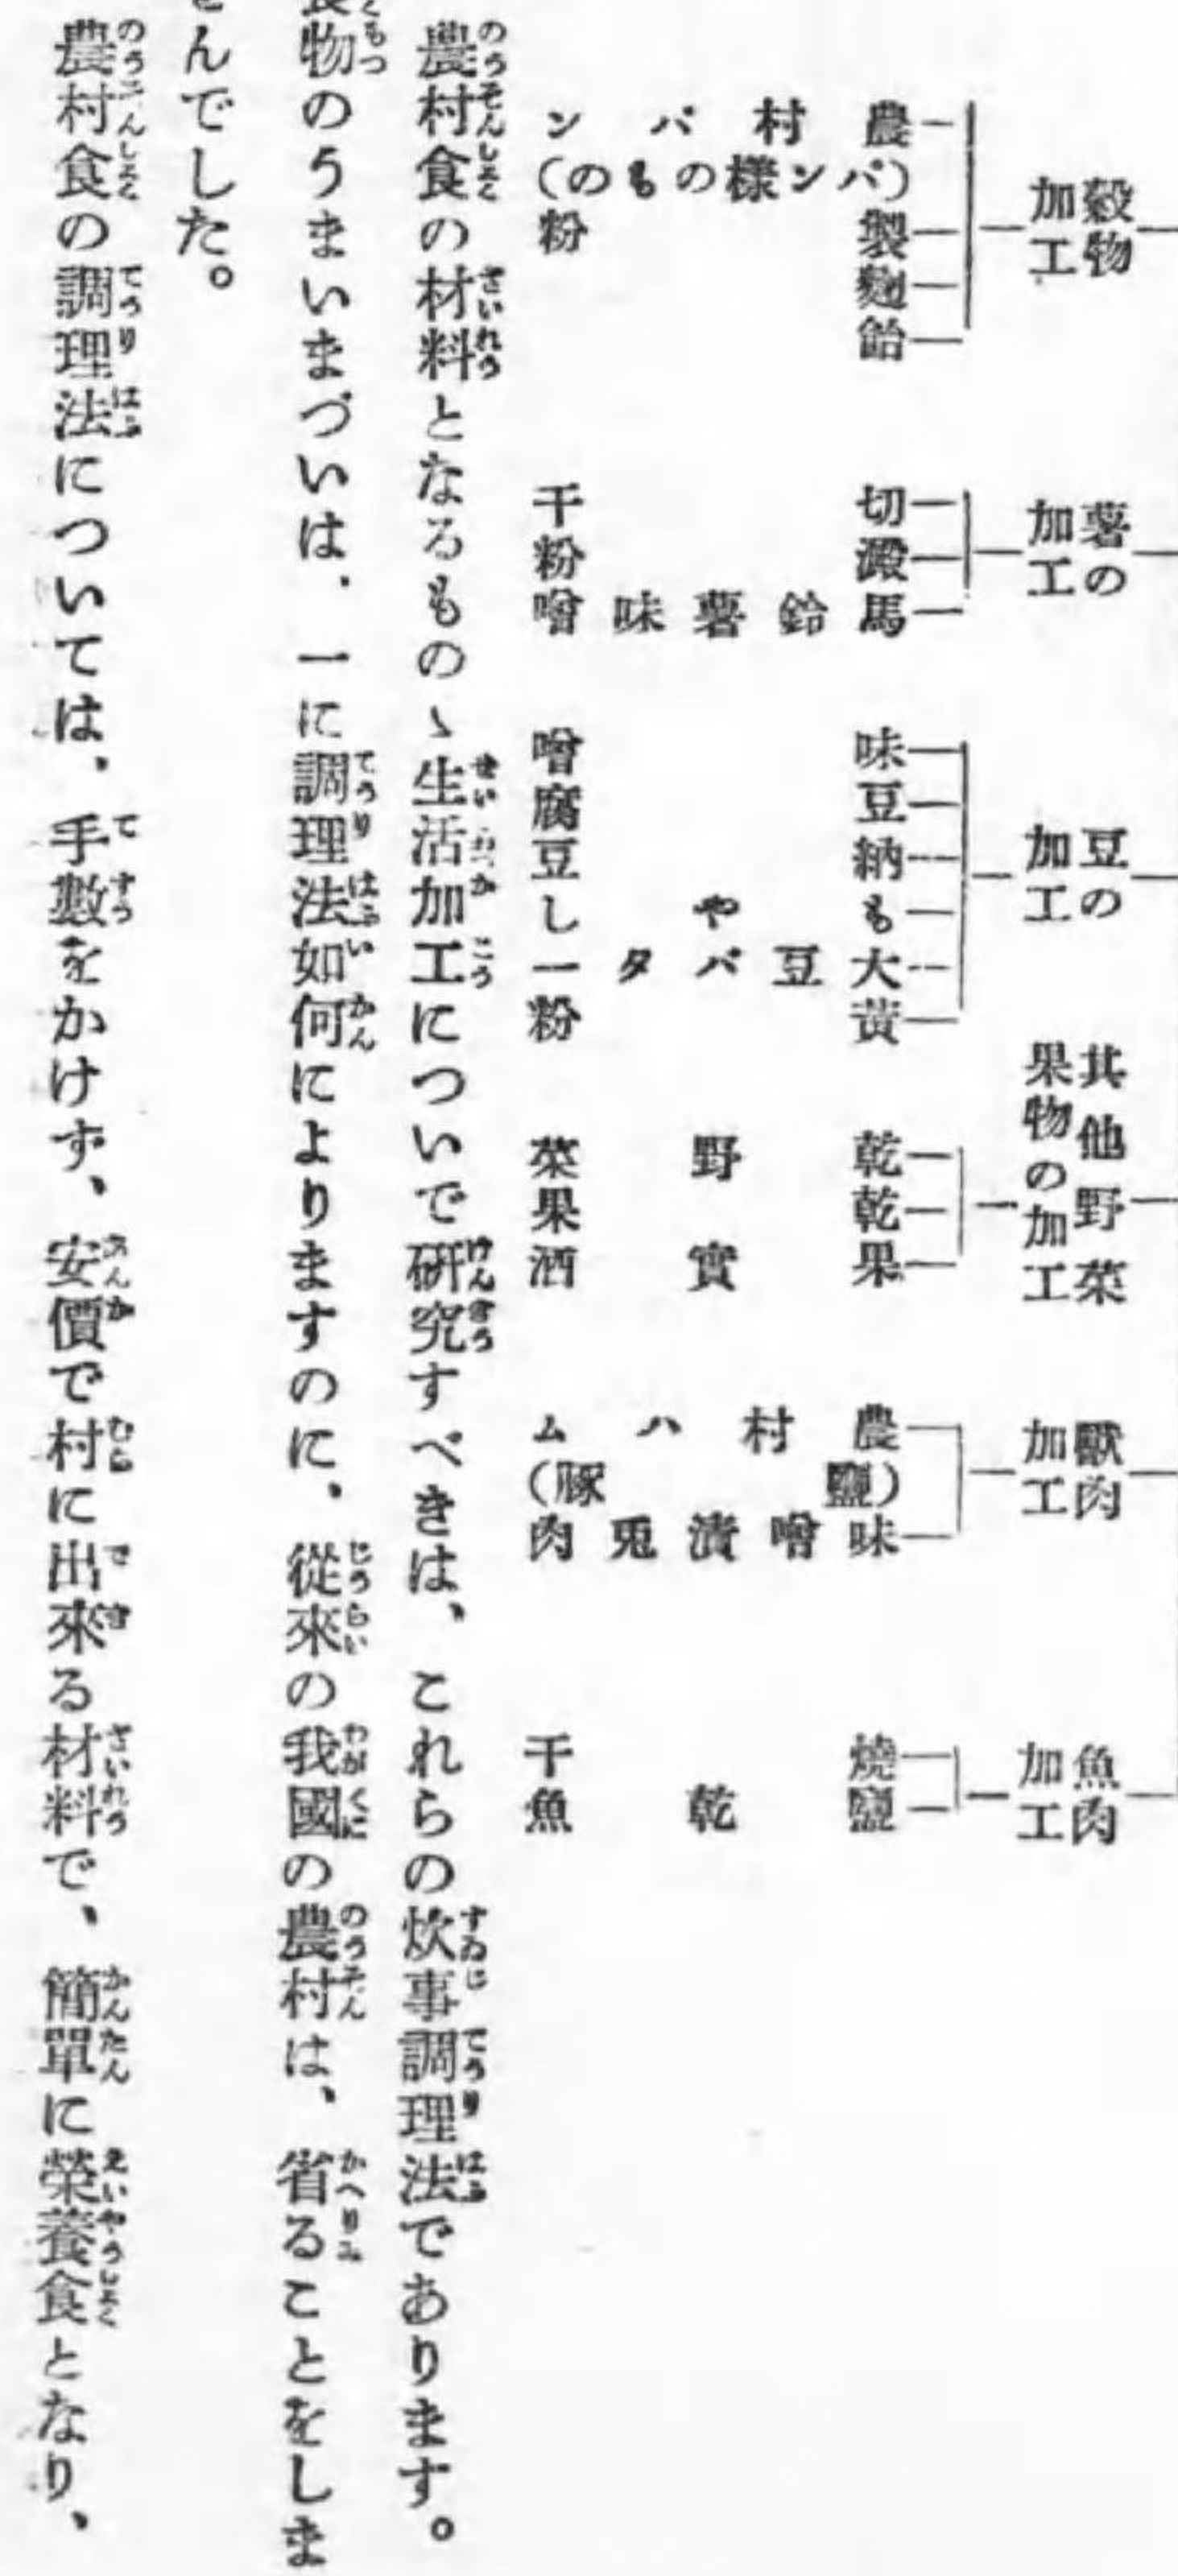 穀物加工
農村パン
(パン樣のもの)
製粉
麹
飴
薯の加工
切干
澱粉
馬鈴薯味噌
豆の加工
味噌
豆腐
納豆
もやし
大豆バター
黄粉
其他野菜果物の加工
乾野菜
乾果
果實酒
獸肉加工
農村ハム
(鹽豚)
味噌漬兎肉
魚肉加工
燒干
鹽乾魚
農村食の材料となるものゝ生活加工についで研究すべきは、これらの炊事調理法であります。
食物のうまいまづいは、一に調理法如何によりますのに、從來の我國の農村は、省ることをしま
せんでした。
農村食の調理法については、手數をかけず、安價で村に出來る材料で、簡單に榮養食となり、